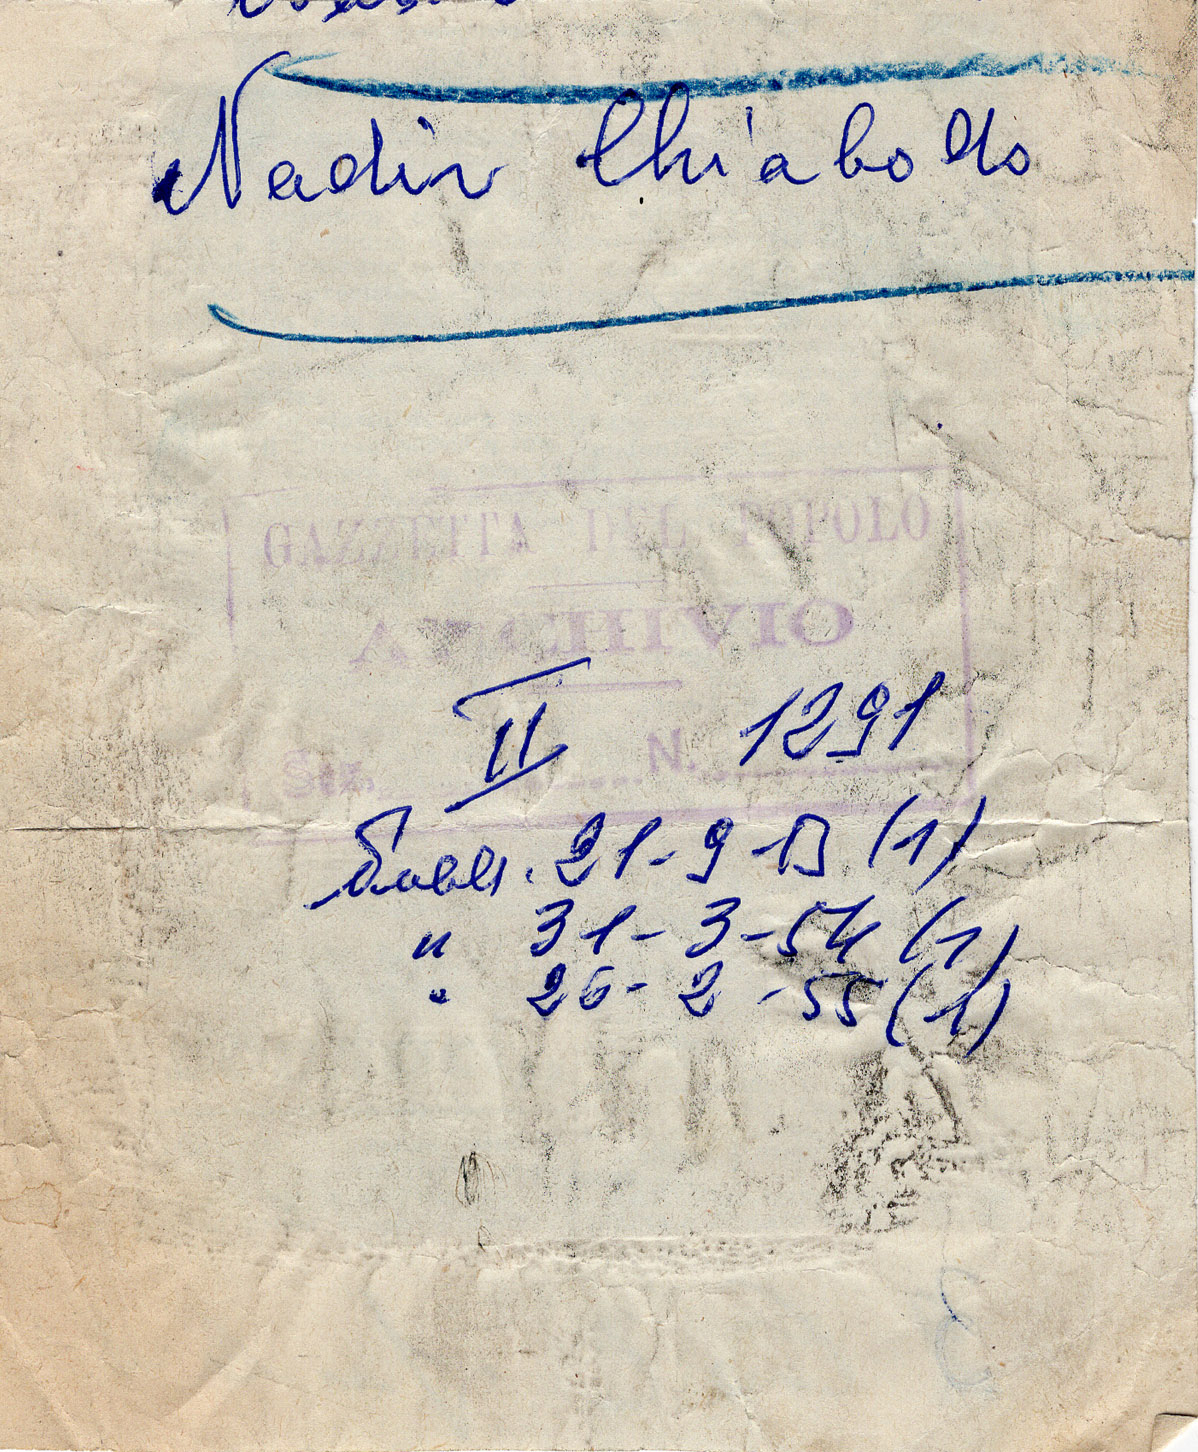 Nadir Chiabotto
GAZZETTA DEL POPOLO
ARCHIVIO
II 1291
Sez. N.
21-9-53 (1)
" 31-3-54 (1)
" 26-2-55 (1)